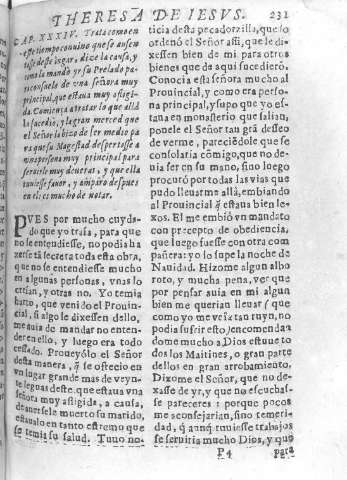 THERESA DE IESVS. 231
CAP. XXXIV. Trata como en
este tiempo conuino que se ausen-
tasse deste lugar, dice la causa, y
como la mandò yr su Prelado pa-
ra consuelo de vna señora muy
principal, que estaua muy afligi-
da. Comiença a tratar lo que allà
le sucediò, y la gran merced que
el Señor la hizo de ser medio pa-
ra que su Magestad despertasse a
vna persona muy principal para
seruirle muy deueras, y que ella
tuuiesse fauor, y amparo despues
en el: es mucho de notar.
PVES por mucho cuyda-
do que yo traìa, para que
no se entendiesse, no podia ha
zerse tã secreta toda esta obra,
que no se entendiesse mucho
en algunas personas, vnas lo
creìan, y otras no. Yo temia
harto, que venido el Prouin-
cial, si algo le dixessen dello,
me auia de mandar no enten-
der en ello, y luego era todo
cessado. Proueyòlo el Señor
desta manera, q̃ se ofrecio en
vn lugar grande mas de veyn-
te leguas deste, que estaua vna
señora muy afligida, a causa,
de auersele muerto su marido,
estaualo en tanto estremo que
se temia su salud. Tuuo no-
ticia desta pecadorzilla, que lo
ordenó el Señor assi, que le di-
xessen bien de mi para otros
bienes que de aqui sucedierõ.
Conocia esta señora mucho al
Prouincial, y como era perso-
na principal, y supo que yo es-
taua en monasterio que salian,
ponele el Señor tan grã desseo
de verme, pareciẽdole que se
consolaria cõmigo, que no de-
uia ser en su mano, sino luego
procuró por todas las vias que
pudo lleuarme allà, embiando
al Prouincial q̃ estaua bien le-
xos. El me embiò vn mandato
con precepto de obediencia,
que luego fuesse con otra com
pañera: yo lo supe la noche de
Nauidad. Hizome algun albo
roto, y mucha pena, ver que
por pensar auia en mi algun
bien me querian lleuar (que
como yo me veìa tan ruyn, no
podia sufrir esto) encomendan
dome mucho a Dios estuue to
dos los Maitines, o gran parte
dellos en gran arrobamiento,
Dixome el Señor, que no de-
xasse de yr, y que no escuchas-
se pareceres: porque pocos
me aconsejarian, sino temeri-
dad, q̃ aunq̃ tuuiesse trabajos
se seruiria mucho Dios, y que
F. 4 para